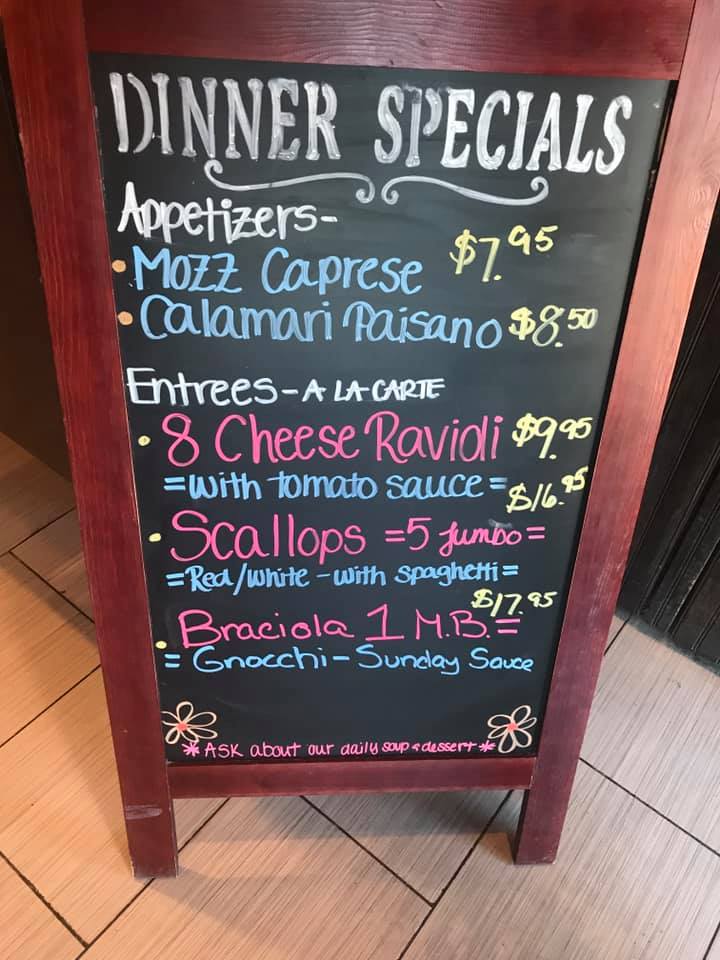 DINNER SPECIALS
Appetizers-
• Mozz Caprese $7.95
• Calamari Paisano $8.50
Entrees - A LA CARTE
• 8 Cheese Ravioli $9.95
=with tomato sauce=
$16.95
• Scallops =5 Jumbo=
=Red/White - with spaghetti=
$17.95
• Braciola 1 M.B.=
= Gnocchi - Sunday Sauce
*ASK about our daily soup & dessert*